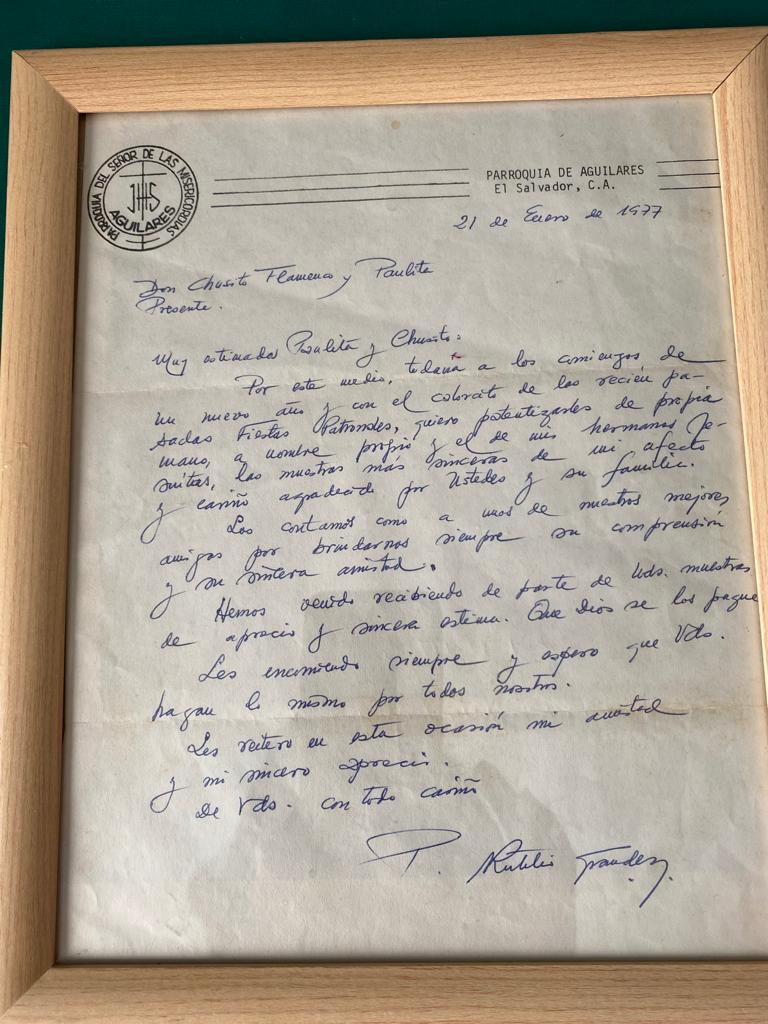 PARROQUIA DEL SEÑOR DE LAS MISERICORDIAS
JHS
AGUILARES
PARROQUIA DE AGUILARES
El Salvador, C.A.
21 de Enero de 1977
Don Chusito Flamenco y Paulita
Presente.
Muy estimados Paulita y Chusito:
Por este medio, todavía a los comienzos de
un nuevo año y con el colorcito de las recién pa-
sadas Fiestas Patronales, quiero potentizarles de propia
mano, a nombre propio y el de mis hermanos Je-
suitas, las muestras más sinceras de mi afecto
y cariño agradecido por Ustedes y su familia.
Los contamos como a unos de nuestros mejores
amigos por brindarnos siempre su comprensión
y su sincera amistad.
Hemos venido recibiendo de parte de Uds. muestras
de aprecio y sincera estima. Que Dios se los pague
Les encomiendo siempre y espero que Vds.
hagan lo mismo por todos nosotros.
Les reitero en esta ocasión mi amistad
y mi sincero aprecio.
De Vds. con todo cariño
P. Rutilio Grande